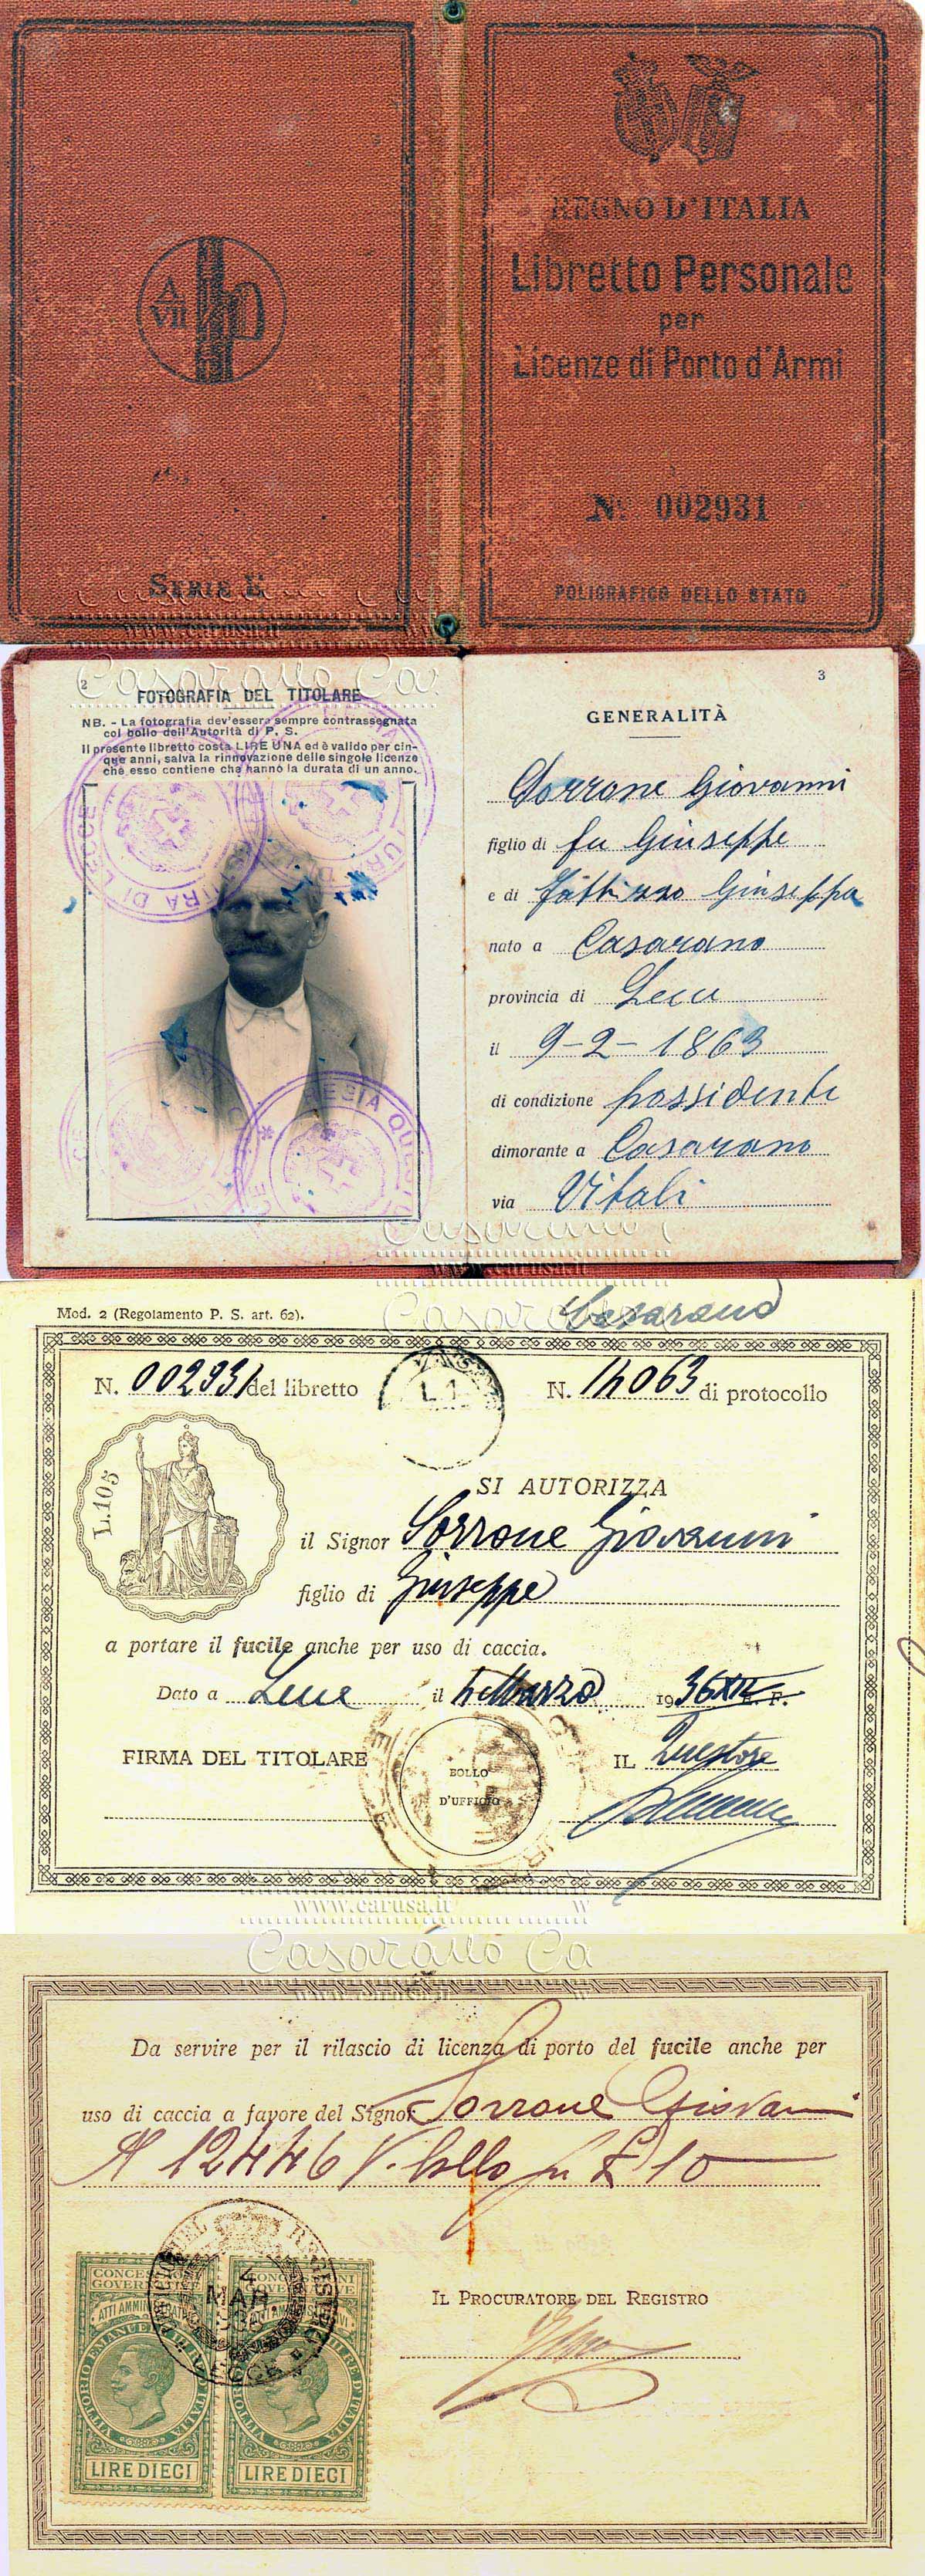 A
VII
SERIE E
REGNO D'ITALIA
Libretto Personale
per
Licenze di Porto d'Armi
Nº 002931
POLIGRAFICO DELLO STATO
www.carusa.it
Casarano Ca
2
FOTOGRAFIA DEL TITOLARE
NB. - La fotografia dev'essere sempre contrassegnata
col bollo dell'Autorità di P. S.
Il presente libretto costa LIRE UNA ed è valido per cin-
que anni, salva la rinnovazione delle singole licenze
che esso contiene che hanno la durata di un anno.
3
GENERALITÀ
Sorrone Giovanni
figlio di fu Giuseppe
e di Giuseppa
nato a Casarano
provincia di Lecce
il 9-2-1863
di condizione possidente
dimorante a Casarano
via Vitali
Casarano
www.carusa.it
Casarano
Mod. 2 (Regolamento P. S. art. 62).
N. 002931 del libretto
N. 14063 di protocollo
L. 1
L. 105
SI AUTORIZZA
il Signor Sorrone Giovanni
figlio di Giuseppe
a portare il fucile anche per uso di caccia.
Dato a Lecce il 4 Marzo 1936 XIV E. F.
FIRMA DEL TITOLARE
BOLLO
D'UFFICIO
IL Questore
www.carusa.it
Casarano Ca
www.carusa.it
Da servire per il rilascio di licenza di porto del fucile anche per
uso di caccia a favore del Signor Sorrone Giovanni
A 12446 V. bollo per £ 10
4
MAR
LECCE
IL PROCURATORE DEL REGISTRO
CONCESSIONI
GOVERNATIVE
ATTI AMMINISTRATIVI
VITTORIO EMANUELE III RE D'ITALIA
LIRE DIECI
LIRE DIECI